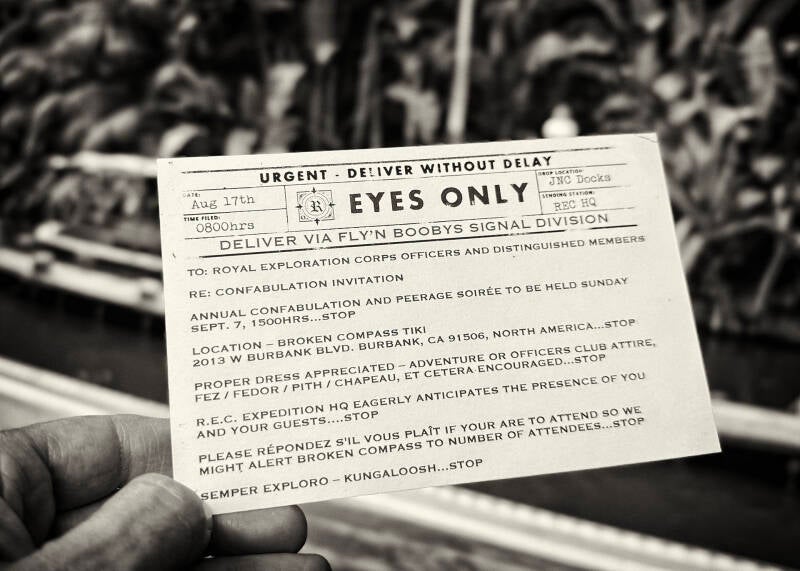 URGENT - DELIVER WITHOUT DELAY
DATE:
Aug 17th
TIME FILED:
0800hrs
R
EYES ONLY
DROP LOCATION:
JNC Docks
SENDING STATION:
REC HQ
DELIVER VIA FLY'N BOOBYS SIGNAL DIVISION
TO: ROYAL EXPLORATION CORPS OFFICERS AND DISTINGUISHED MEMBERS
RE: CONFABULATION INVITATION
ANNUAL CONFABULATION AND PEERAGE SOIRÉE TO BE HELD SUNDAY
SEPT. 7, 1500HRS...STOP
LOCATION – BROKEN COMPASS TIKI
2013 W BURBANK BLVD. BURBANK, CA 91506, NORTH AMERICA...STOP
PROPER DRESS APPRECIATED – ADVENTURE OR OFFICERS CLUB ATTIRE,
FEZ / FEDOR / PITH / CHAPEAU, ET CETERA ENCOURAGED...STOP
R.E.C. EXPEDITION HQ EAGERLY ANTICIPATES THE PRESENCE OF YOU
AND YOUR GUESTS....STOP
PLEASE RÉPONDEZ S'IL VOUS PLAÎT IF YOUR ARE TO ATTEND SO WE
MIGHT ALERT BROKEN COMPASS TO NUMBER OF ATTENDEES...STOP
SEMPER EXPLORO – KUNGALOOSH...STOP